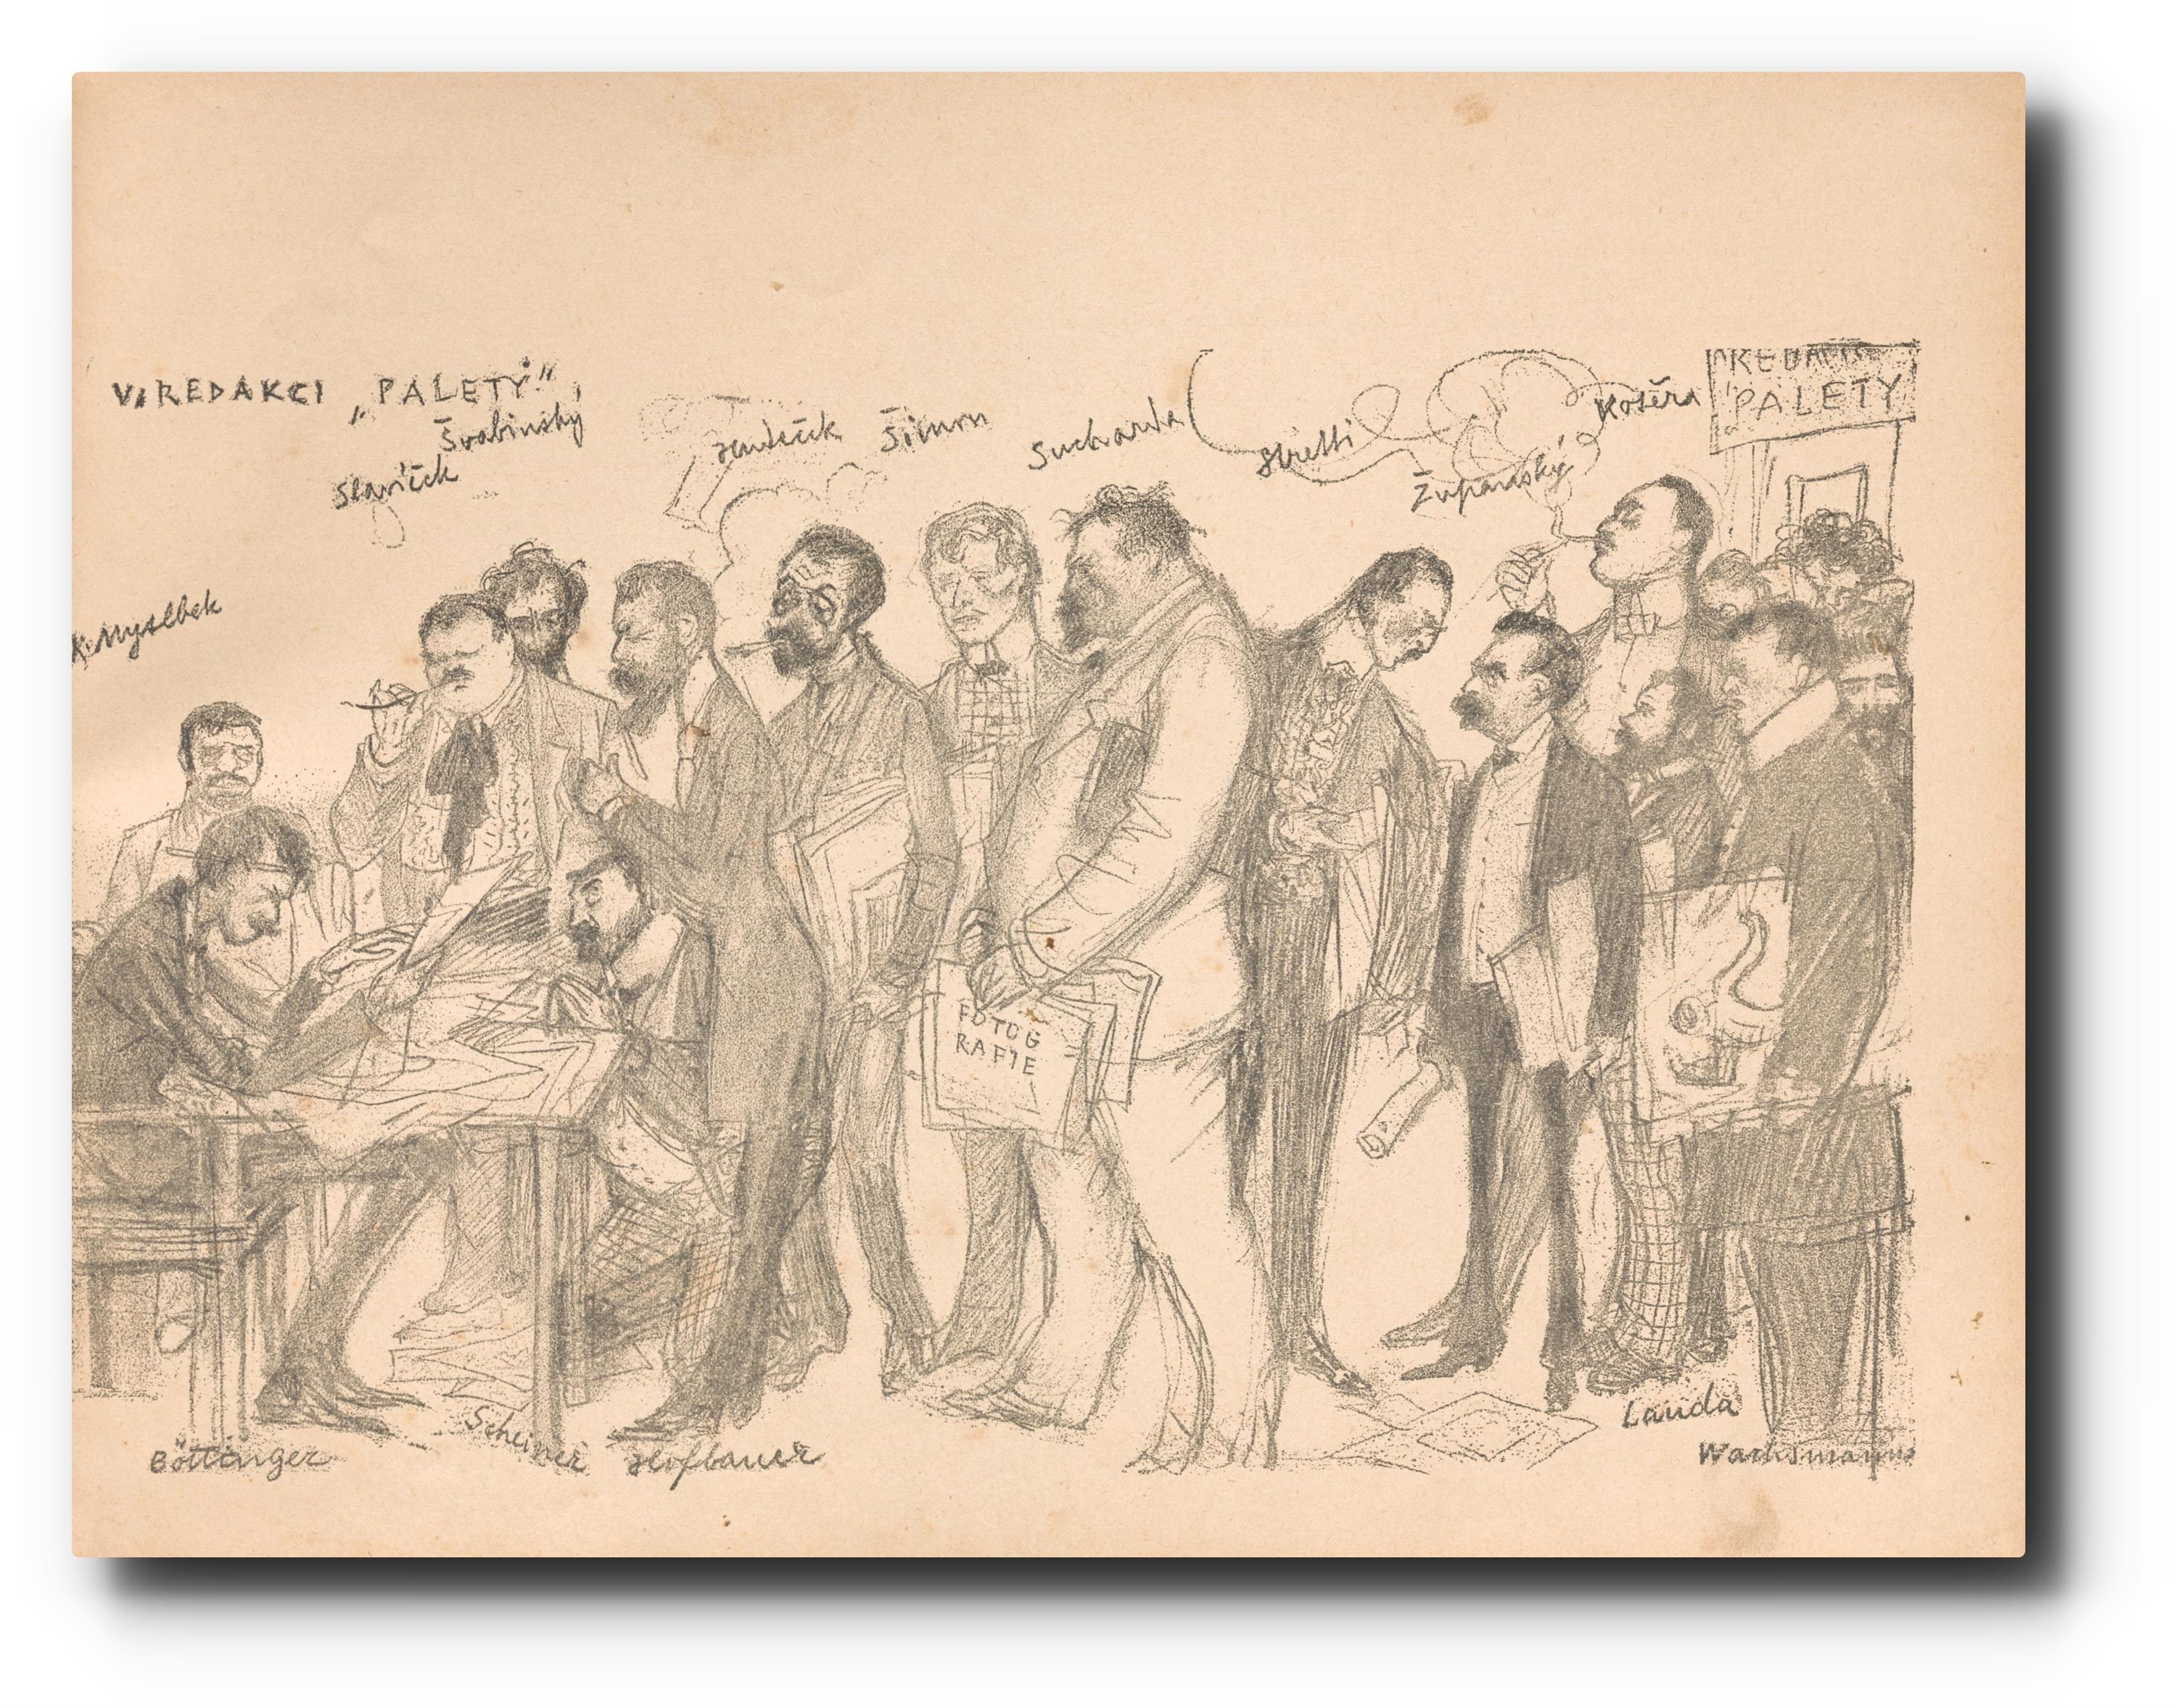 V REDAKCI „PALETY“
Švabinský
Slavíček
K. Myslbek
Hudeček
Šimon
Sucharda
Stretti
Županský
Kotěra
REDAKCE
PALETY
FOTOG
RAFIE
Böttinger
Scheiner
Hofbauer
Lauda
Wachsmann